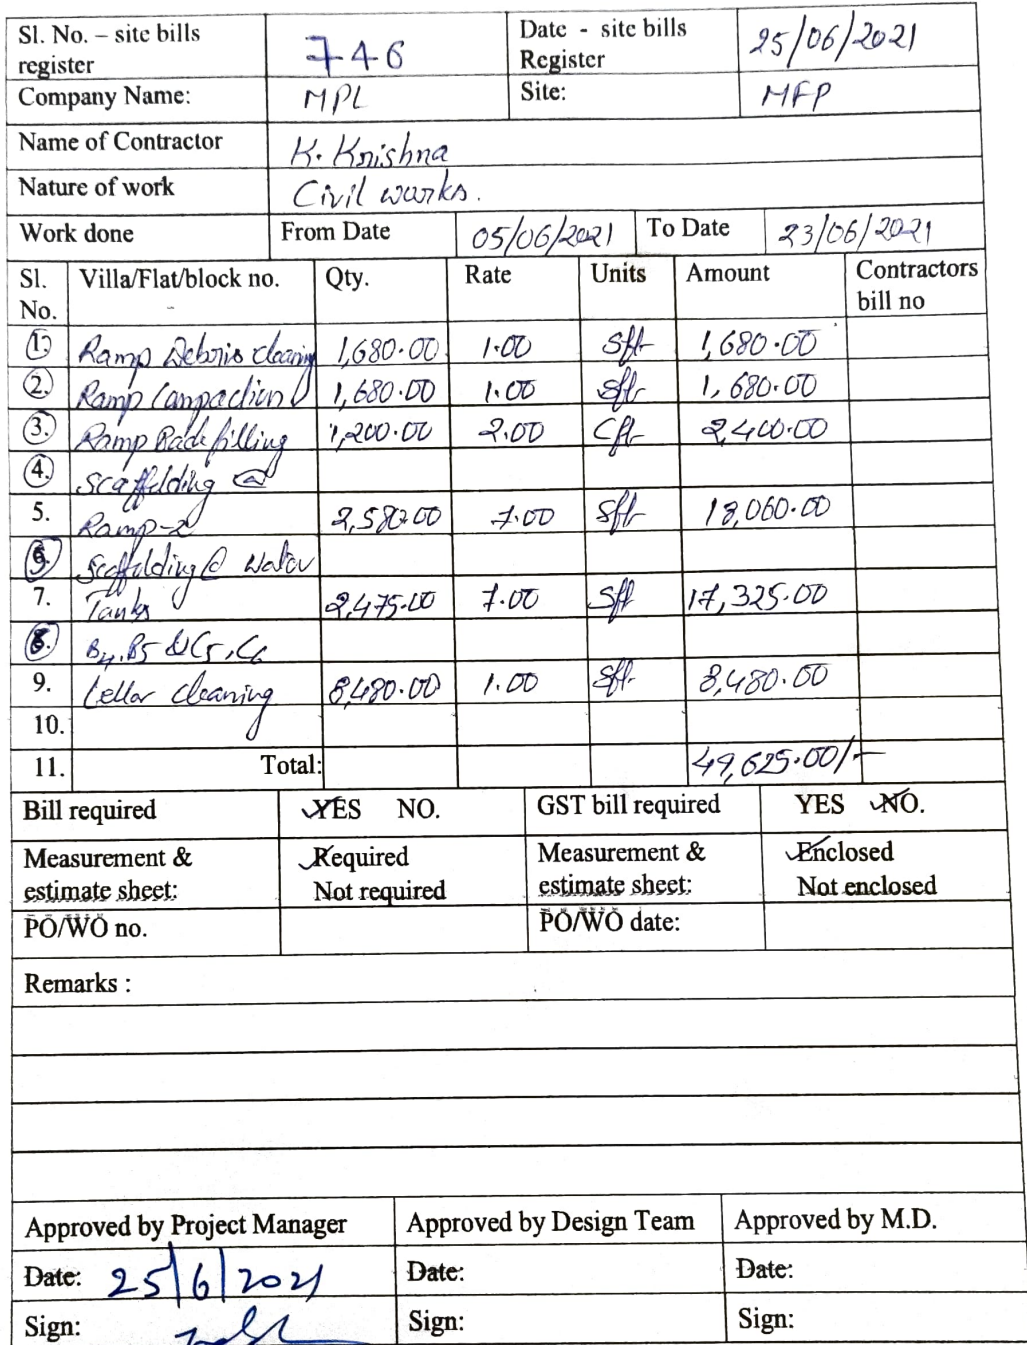 Sl. No. – site bills register 746 Date - site bills Register 25/06/2021
Company Name: MPL Site: MFP
Name of Contractor K. Krishna
Nature of work Civil works.
Work done From Date 05/06/2021 To Date 23/06/2021
Sl. No. Villa/Flat/block no. Qty. Rate Units Amount Contractors bill no
1. Ramp Debris cleaning 1,680.00 1.00 Sft 1,680.00
2. Ramp Compaction 1,680.00 1.00 Sft 1,680.00
3. Ramp Back filling 1,200.00 2.00 Cft 2,400.00
4. Scaffolding @
5. Ramp-2 2,580.00 7.00 Sft 18,060.00
5. Scaffolding @ Water
7. Tanks 2,475.00 7.00 Sft 17,325.00
6. B4, B5 & C5, C6
9. Cellar cleaning 8,480.00 1.00 Sft 8,480.00
10.
11. Total: 49,625.00/-
Bill required YES NO. GST bill required YES NO.
Measurement & estimate sheet: Required Not required Measurement & estimate sheet: Enclosed Not enclosed
PO/WO no. PO/WO date:
Remarks :
Approved by Project Manager Approved by Design Team Approved by M.D.
Date: 25/6/2021 Date: Date:
Sign: Sign: Sign: